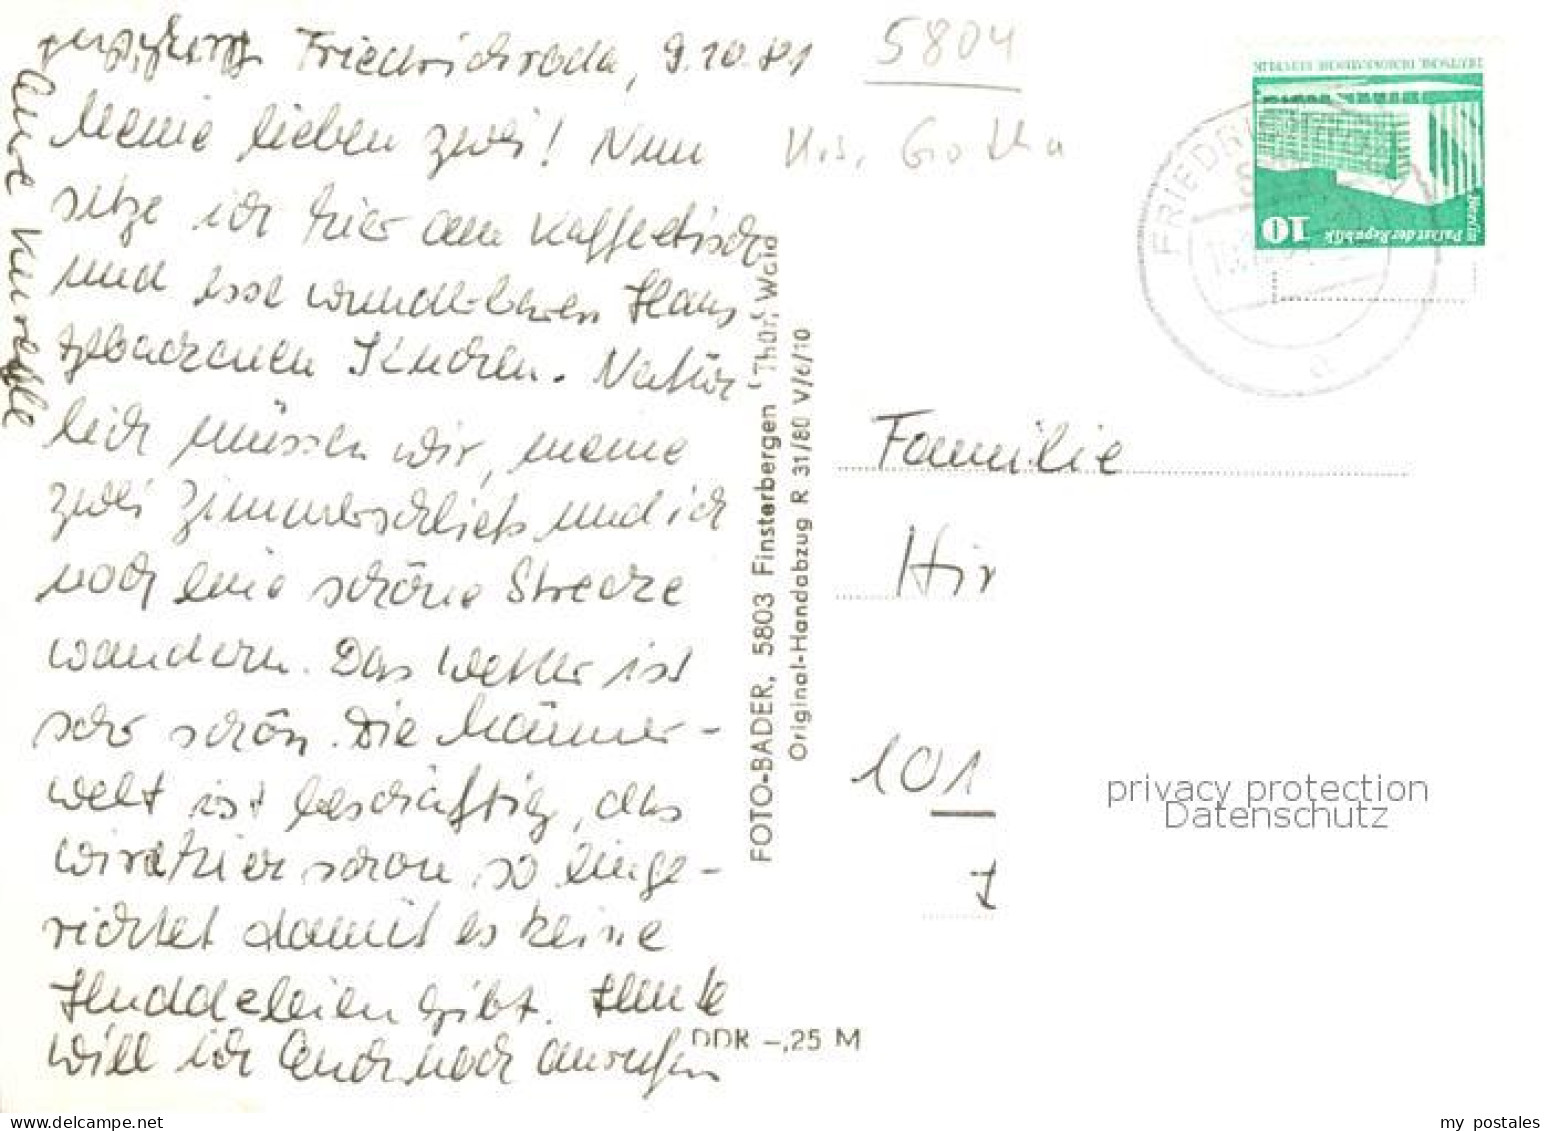 Friedrichroda, 9.10.81
Meine lieben zwei! Nun
sitze ich hier am Kaffeetisch
und esse wunderbaren Haus
gebackenen Kuchen. Natür-
lich müssen wir, meine
zwei und ich
noch eine schöne Strecke
wandern. Das Wetter ist
sehr schön. Die Männer-
welt ist beschäftigt, das
wird hier schon so einge-
richtet damit es keine
gibt. Heute
will ich Euch noch anrufen
Eure
5804
Krs. Gotha
FOTO-BADER, 5803 Finsterbergen Thür. Wald
Original-Handabzug R 31/80 V/6/10
DDR -,25 M
DEUTSCHE DEMOKRATISCHE REPUBLIK
Berlin
Palast der Republik
10
Familie
Hir
101
privacy protection
Datenschutz
my postales